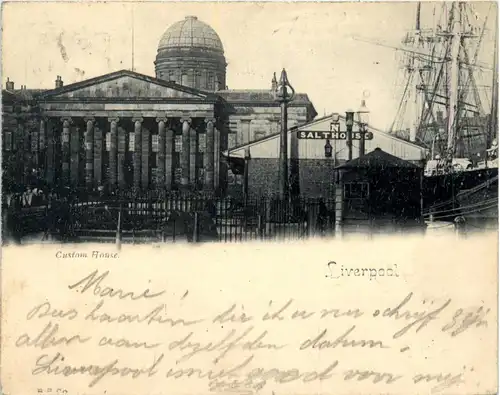 SALTHOUSE
N
Custom House.
Liverpool
Marie!
Das kaarten die ik er nu schrijf zijn
allen aan dezelfden datum.
Liverpool is niet goed voor mij